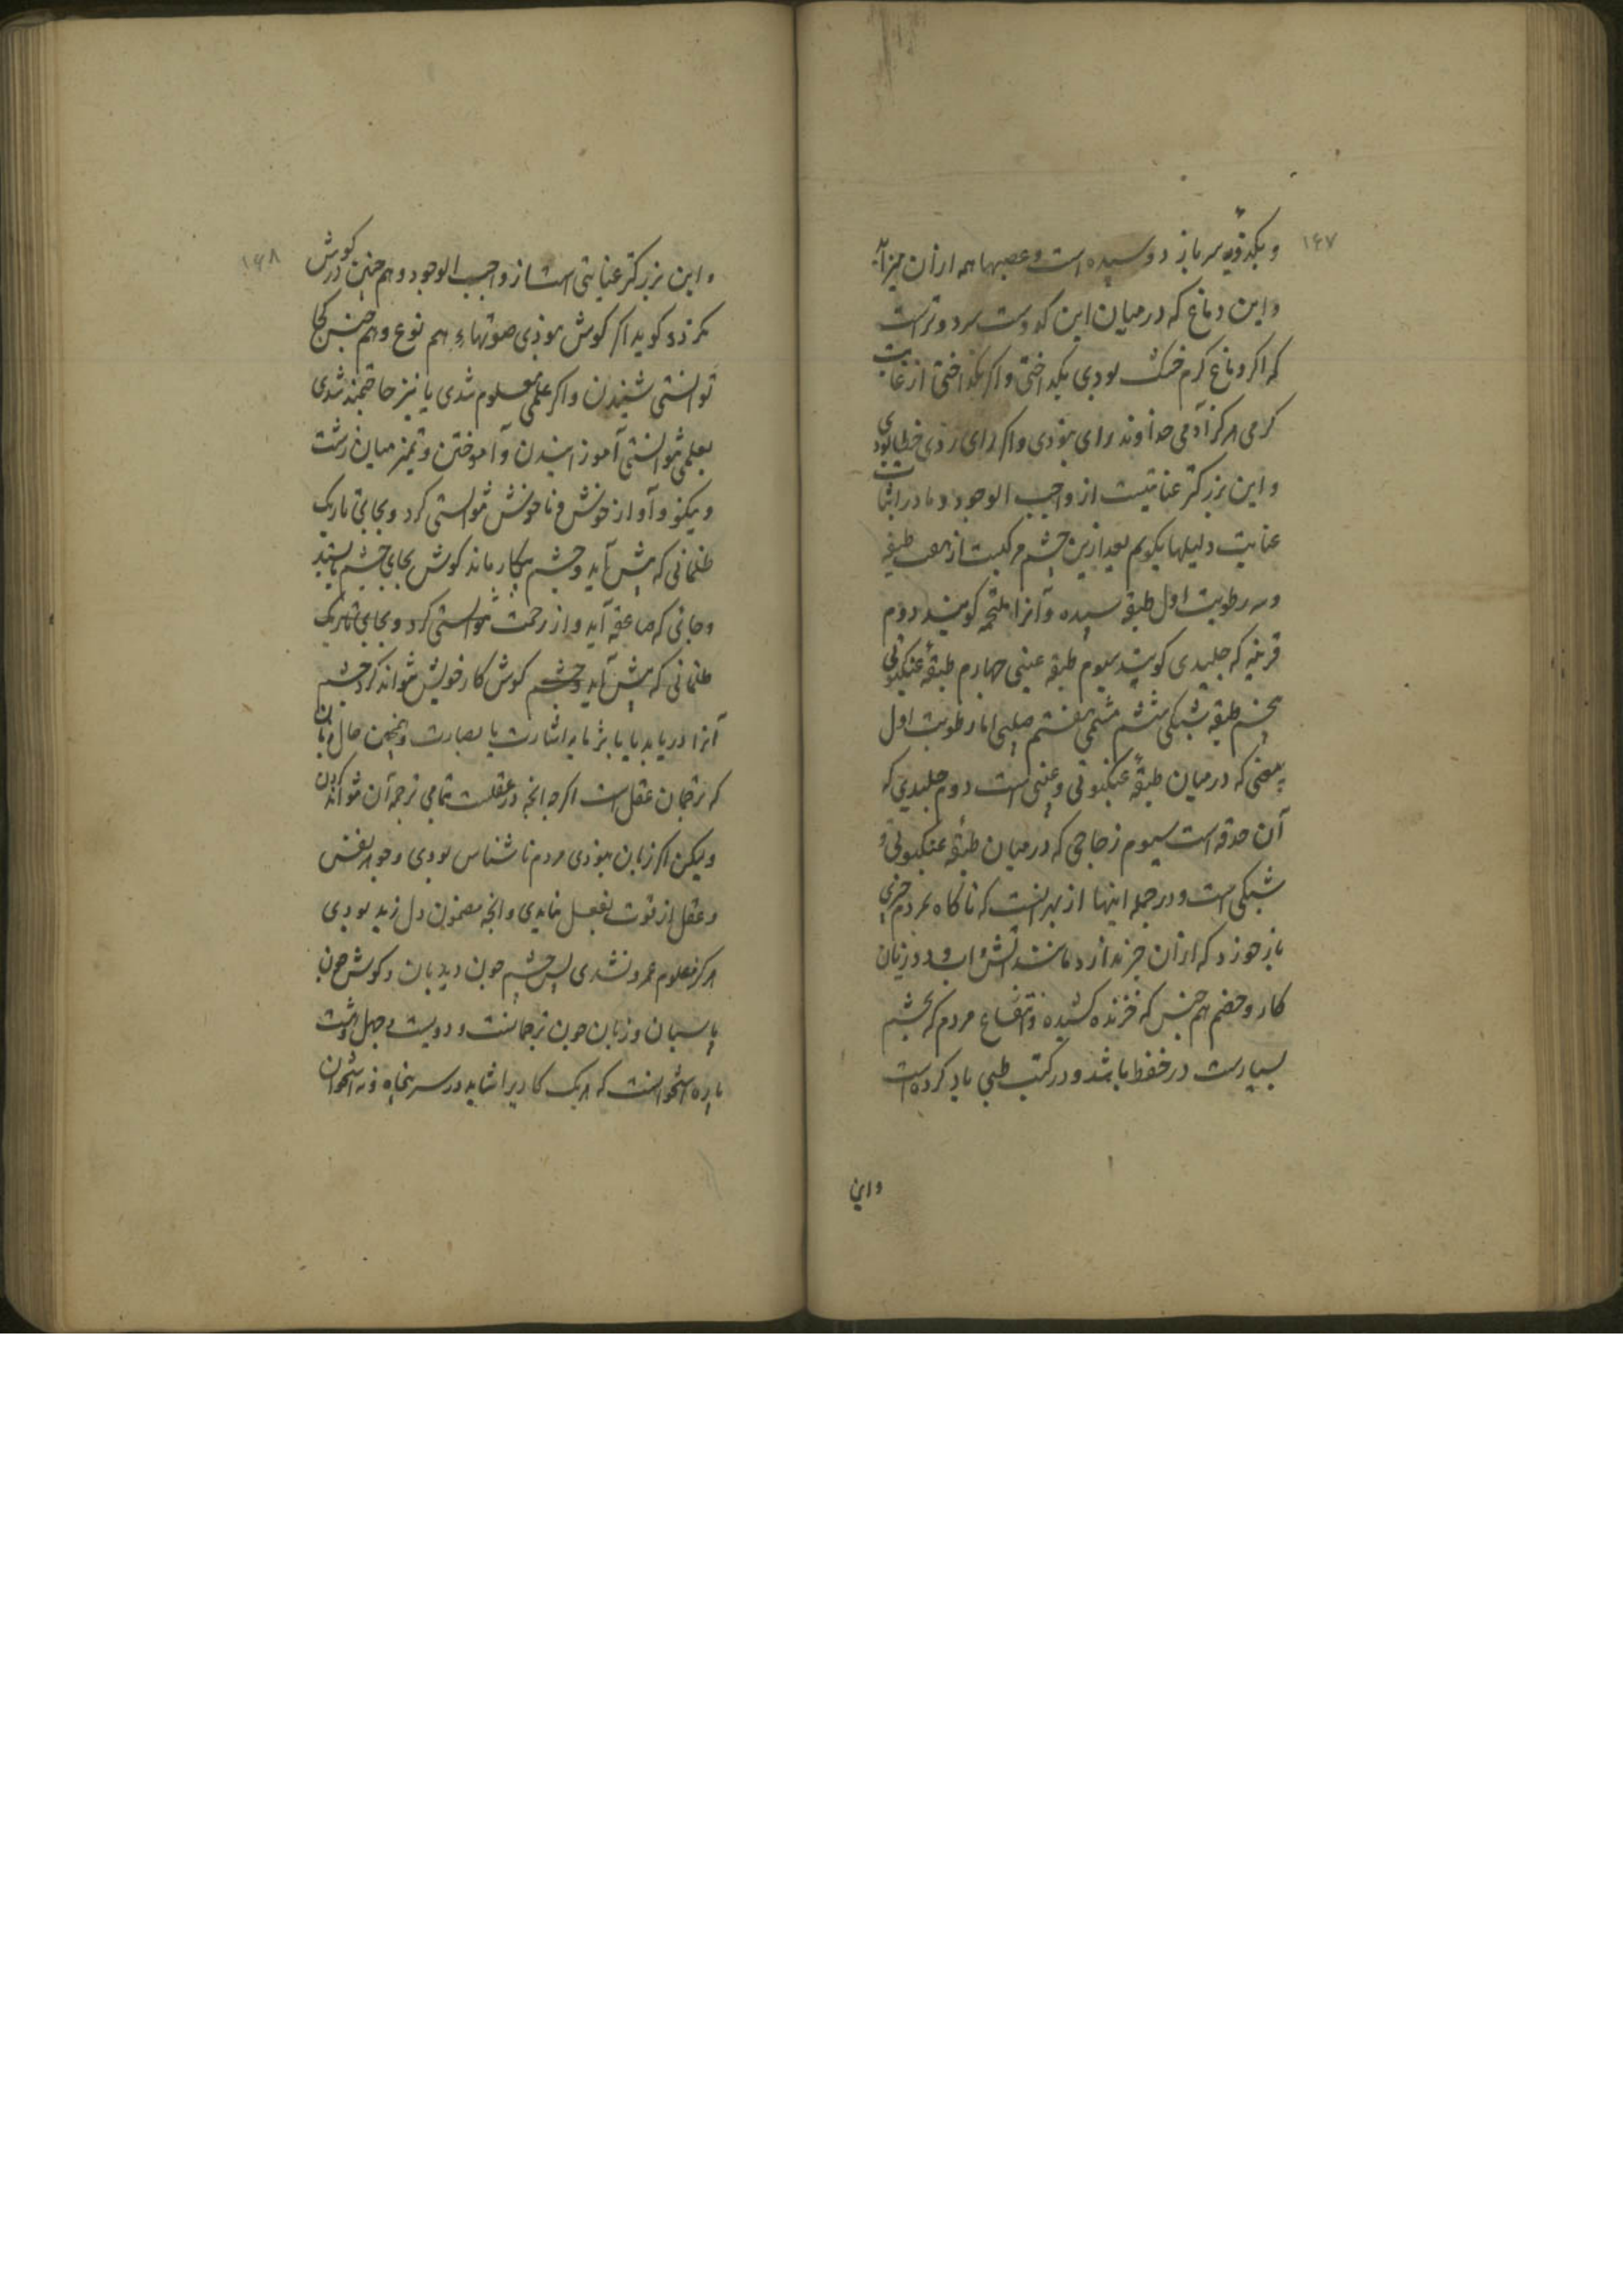 ۱۶۷
و یکدویه سر باز دوسیده است و عصبها همه ازان میزاید
و این دماغ که در میان این کدوست سرد و ترست
که اگر دماغ گرم خشک بودی بگداختی و اگر بگداختی از غایت
گرمی هرگز آدمی خداوند رای نبودی و اگر رای زدی خطا بودی
و این بزرگتر عنایتیست از واجب الوجود و ما در اثبات
عنایت دلیلها بگویم بعد ازین چشم مرکبست از هفت طبقه
و سه رطوبت اول طبقه سپیده و آنرا ملتحمه گویند دوم
قرنیه که جلیدی گویند سیوم طبقه عینی چهارم طبقهٔ عنکبوتی
پنجم طبقه شبکی ششم مشیمی هفتم صلبی اما رطوبت اول
بیضی که درمیان طبقهٔ عنکبوتی و عنبی است دوم جلیدی که
آن حدقه است سیوم زجاجی که درمیان طبقهٔ عنکبوتی و
شبکی است و در جمله اینها از بهر انست که ناگاه بمردم چیزی
باز خورد که ازان خبر ندارد مانند آتش و آب و دد زیان
کار و خصم هم جنس که خزنده کشیده و انتفاع مردم که بچشم
بسیارست در حفظ باشد و در کتب طبی یاد کرده است
و این
۱۶۸
و این بزرگتر عنایتی است از واجب الوجود و هم چنین درگوش
گوید اگر گوش نبودی صوتهاء هم نوع و هم جنس کجا
توانستی شنیدن و اگر علمی معلوم شدی یا نیز حاجتمند شدی
بعلمی نتوانستی آموزانیدن و آموختن و تمیز میان زشت
و نیکو و آواز خوش و ناخوش نتوانستی کرد و بجایی تاریک
ظلمانی که پیش آید و چشم بیکار ماند گوش بجای چشم بایستد
و جائی که صاعقه آید و از زحمت نتوانستی کرد و بجایی تاریک
ظلمانی که پیش آید و چشم گوش کار خویش نتواند کرد چشم
آنرا دریابد یا باشارت یا بصارت و همچنین حال زبان
که ترجمان عقل است اگرچه انچه در عقلست تمامی ترجمه آن نتواند کردن
ولیکن اگر زبان نبودی مردم ناشناس بودی و جوهر نفس
و عقل از قوت بفعل نیامدی و انچه مضمون دل زید بودی
هرگز معلوم عمرو نشدی پس چشم چون دیدبان و گوش چون
پاسبان و زبان چون ترجمانست و دویست و چهل و هشت
پاره استخوانست که هر یک کاریرا شاید در سر پنجاه و نه استخوان